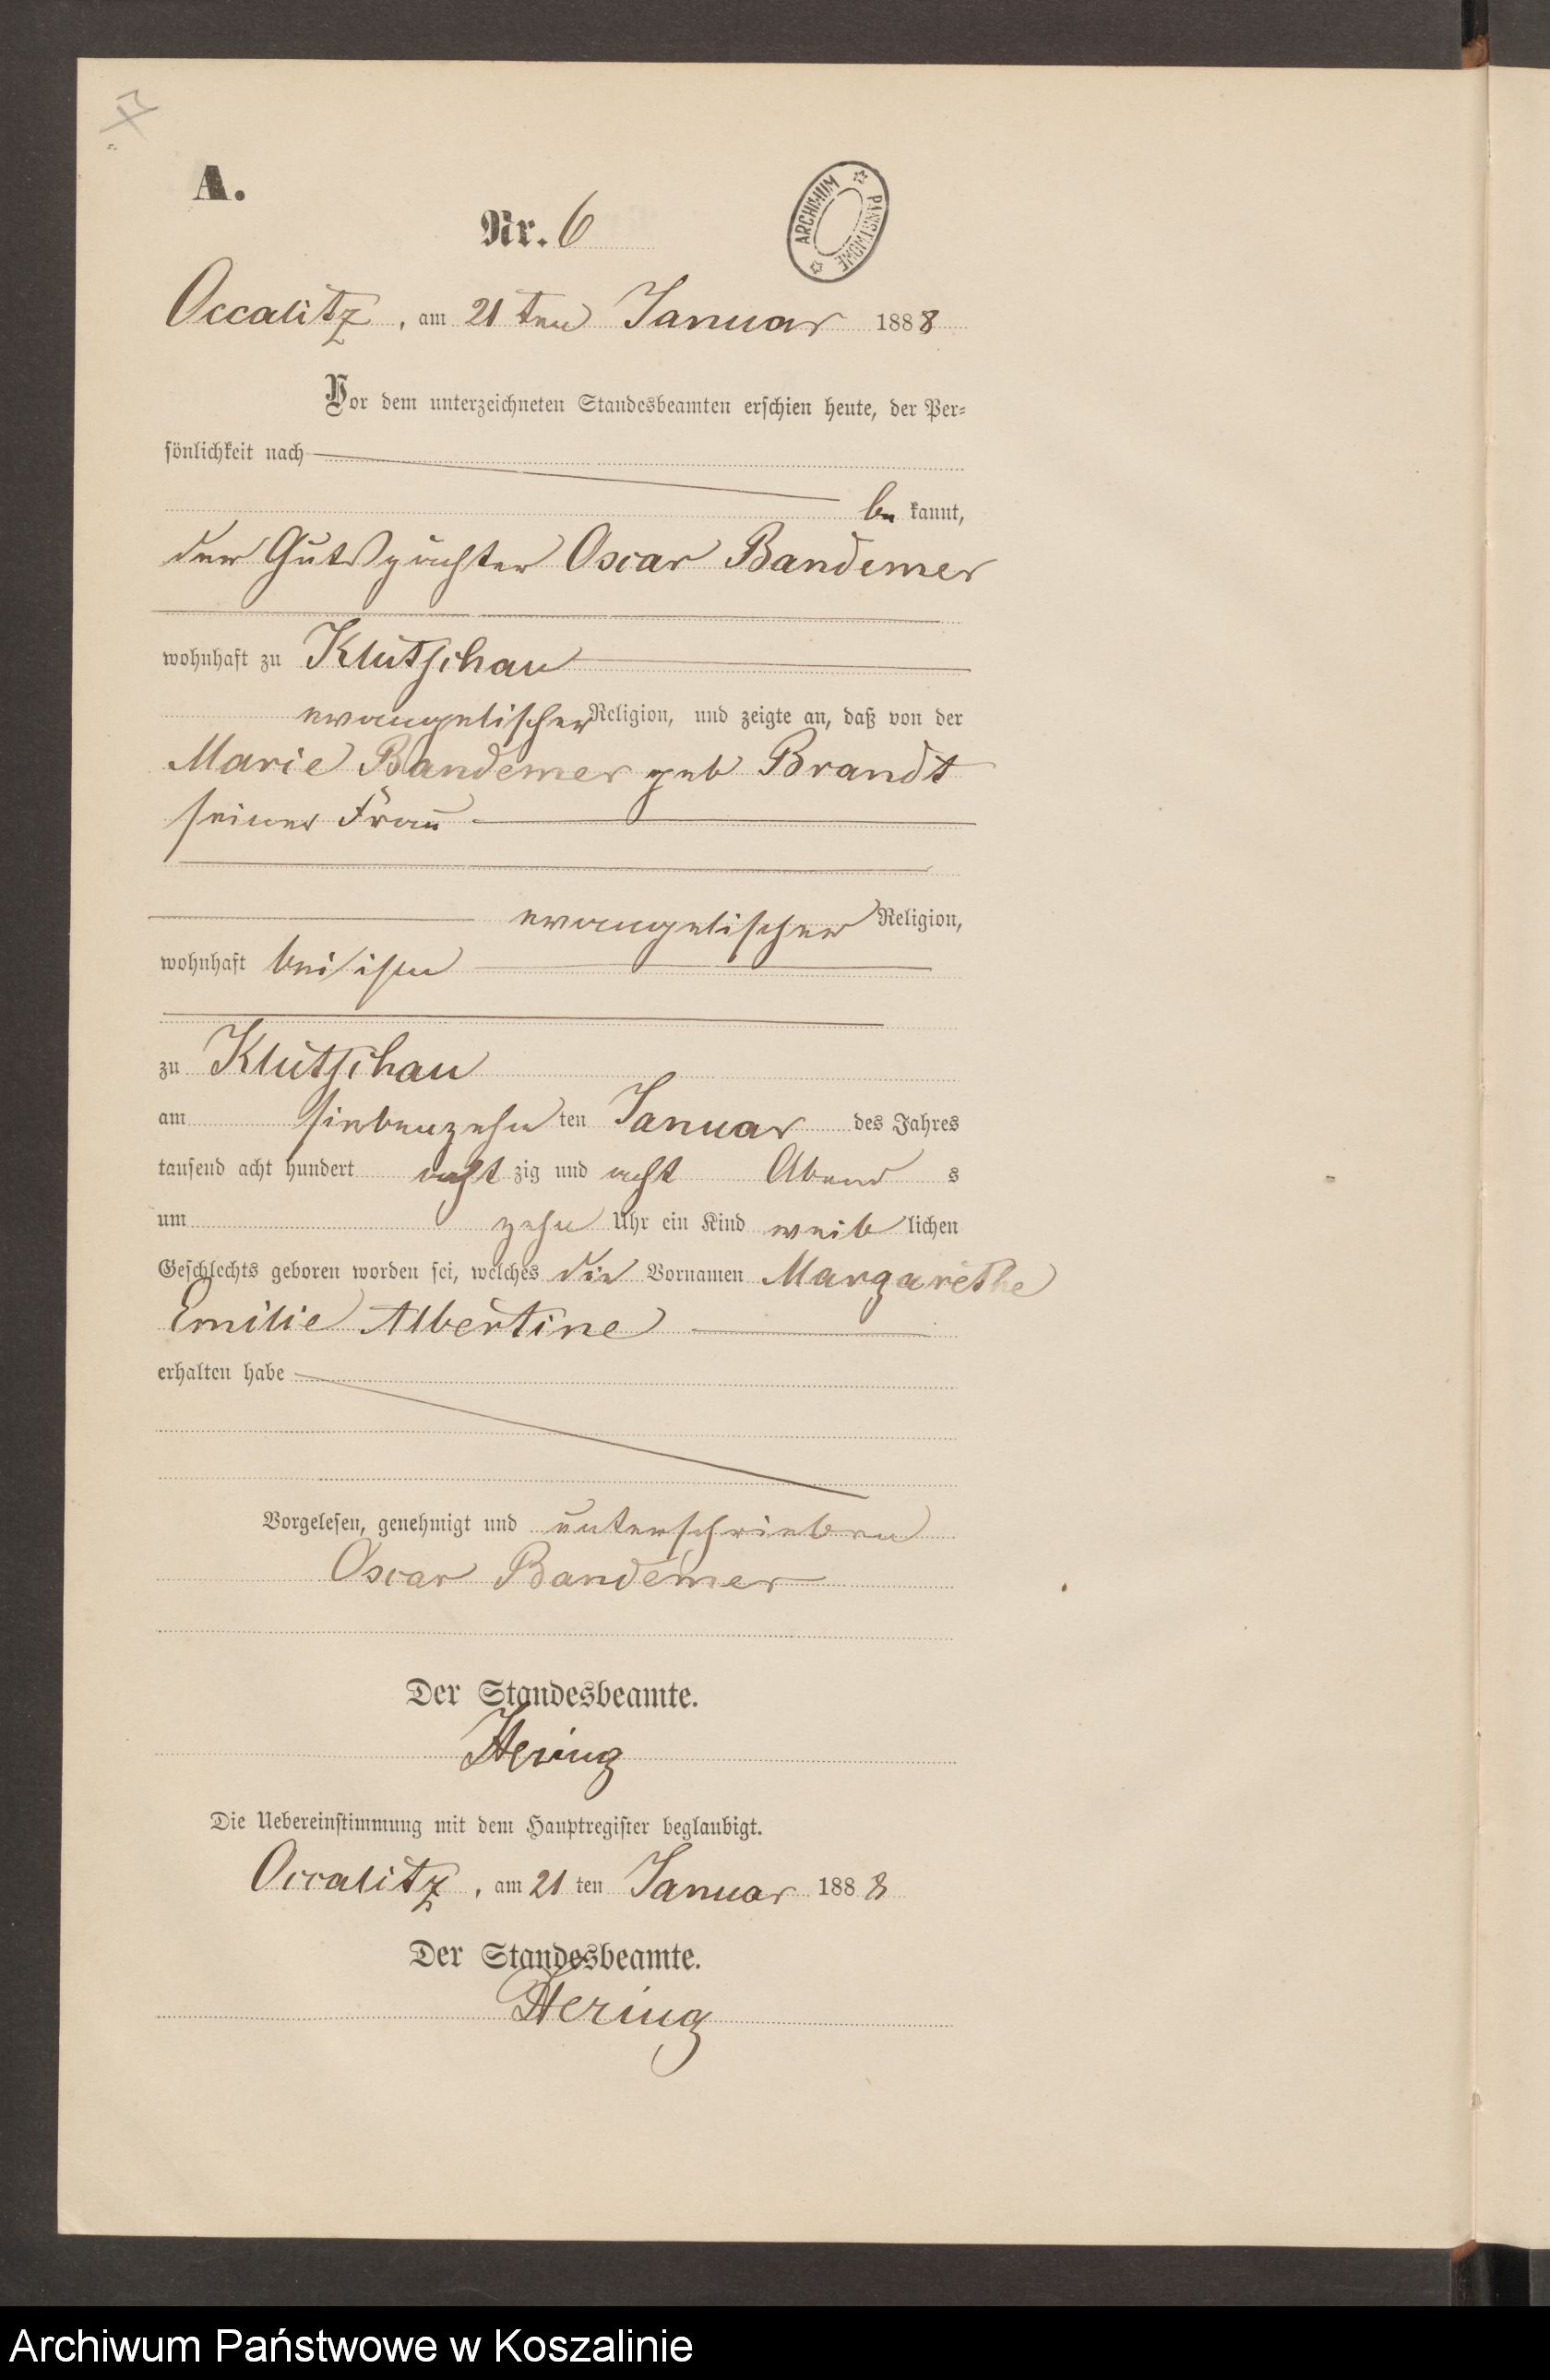 A.
Nr. 6
ARCHIWUM PAŃSTWOWE
Occalitz, am 21 ten Januar 1888
Vor dem unterzeichneten Standesbeamten erschien heute, der Per-
sönlichkeit nach
be kannt,
der Gutspächter Oscar Bandemer
wohnhaft zu Klutschau
evangelischer Religion, und zeigte an, daß von der
Marie Bandemer geb Brandt
seiner Frau
evangelischer Religion,
wohnhaft bei ihm
zu Klutschau
am siebenzehn ten Januar des Jahres
tausend acht hundert acht zig und acht Abend s
um zehn Uhr ein Kind weib lichen
Geschlechts geboren worden sei, welches die Vornamen Margarethe
Emilie Albertine
erhalten habe
Vorgelesen, genehmigt und unterschrieben
Oscar Bandemer
Der Standesbeamte.
Hering
Die Uebereinstimmung mit dem Hauptregister beglaubigt.
Occalitz, am 21 ten Januar 1888
Der Standesbeamte.
Hering
Archiwum Państwowe w Koszalinie